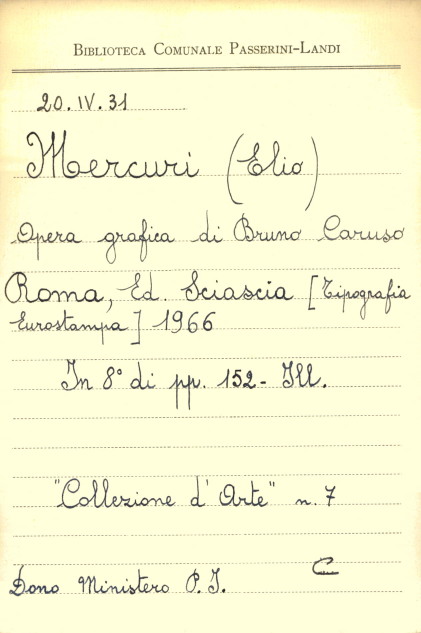 BIBLIOTECA COMUNALE PASSERINI-LANDI
20.IV.31
Mercuri (Elio)
Opera grafica di Bruno Caruso
Roma, Ed. Sciascia [Tipografia
Eurostampa] 1966
In 8° di pp. 152- Ill.
"Collezione d'Arte" n. 7
C
Dono Ministero P.I.